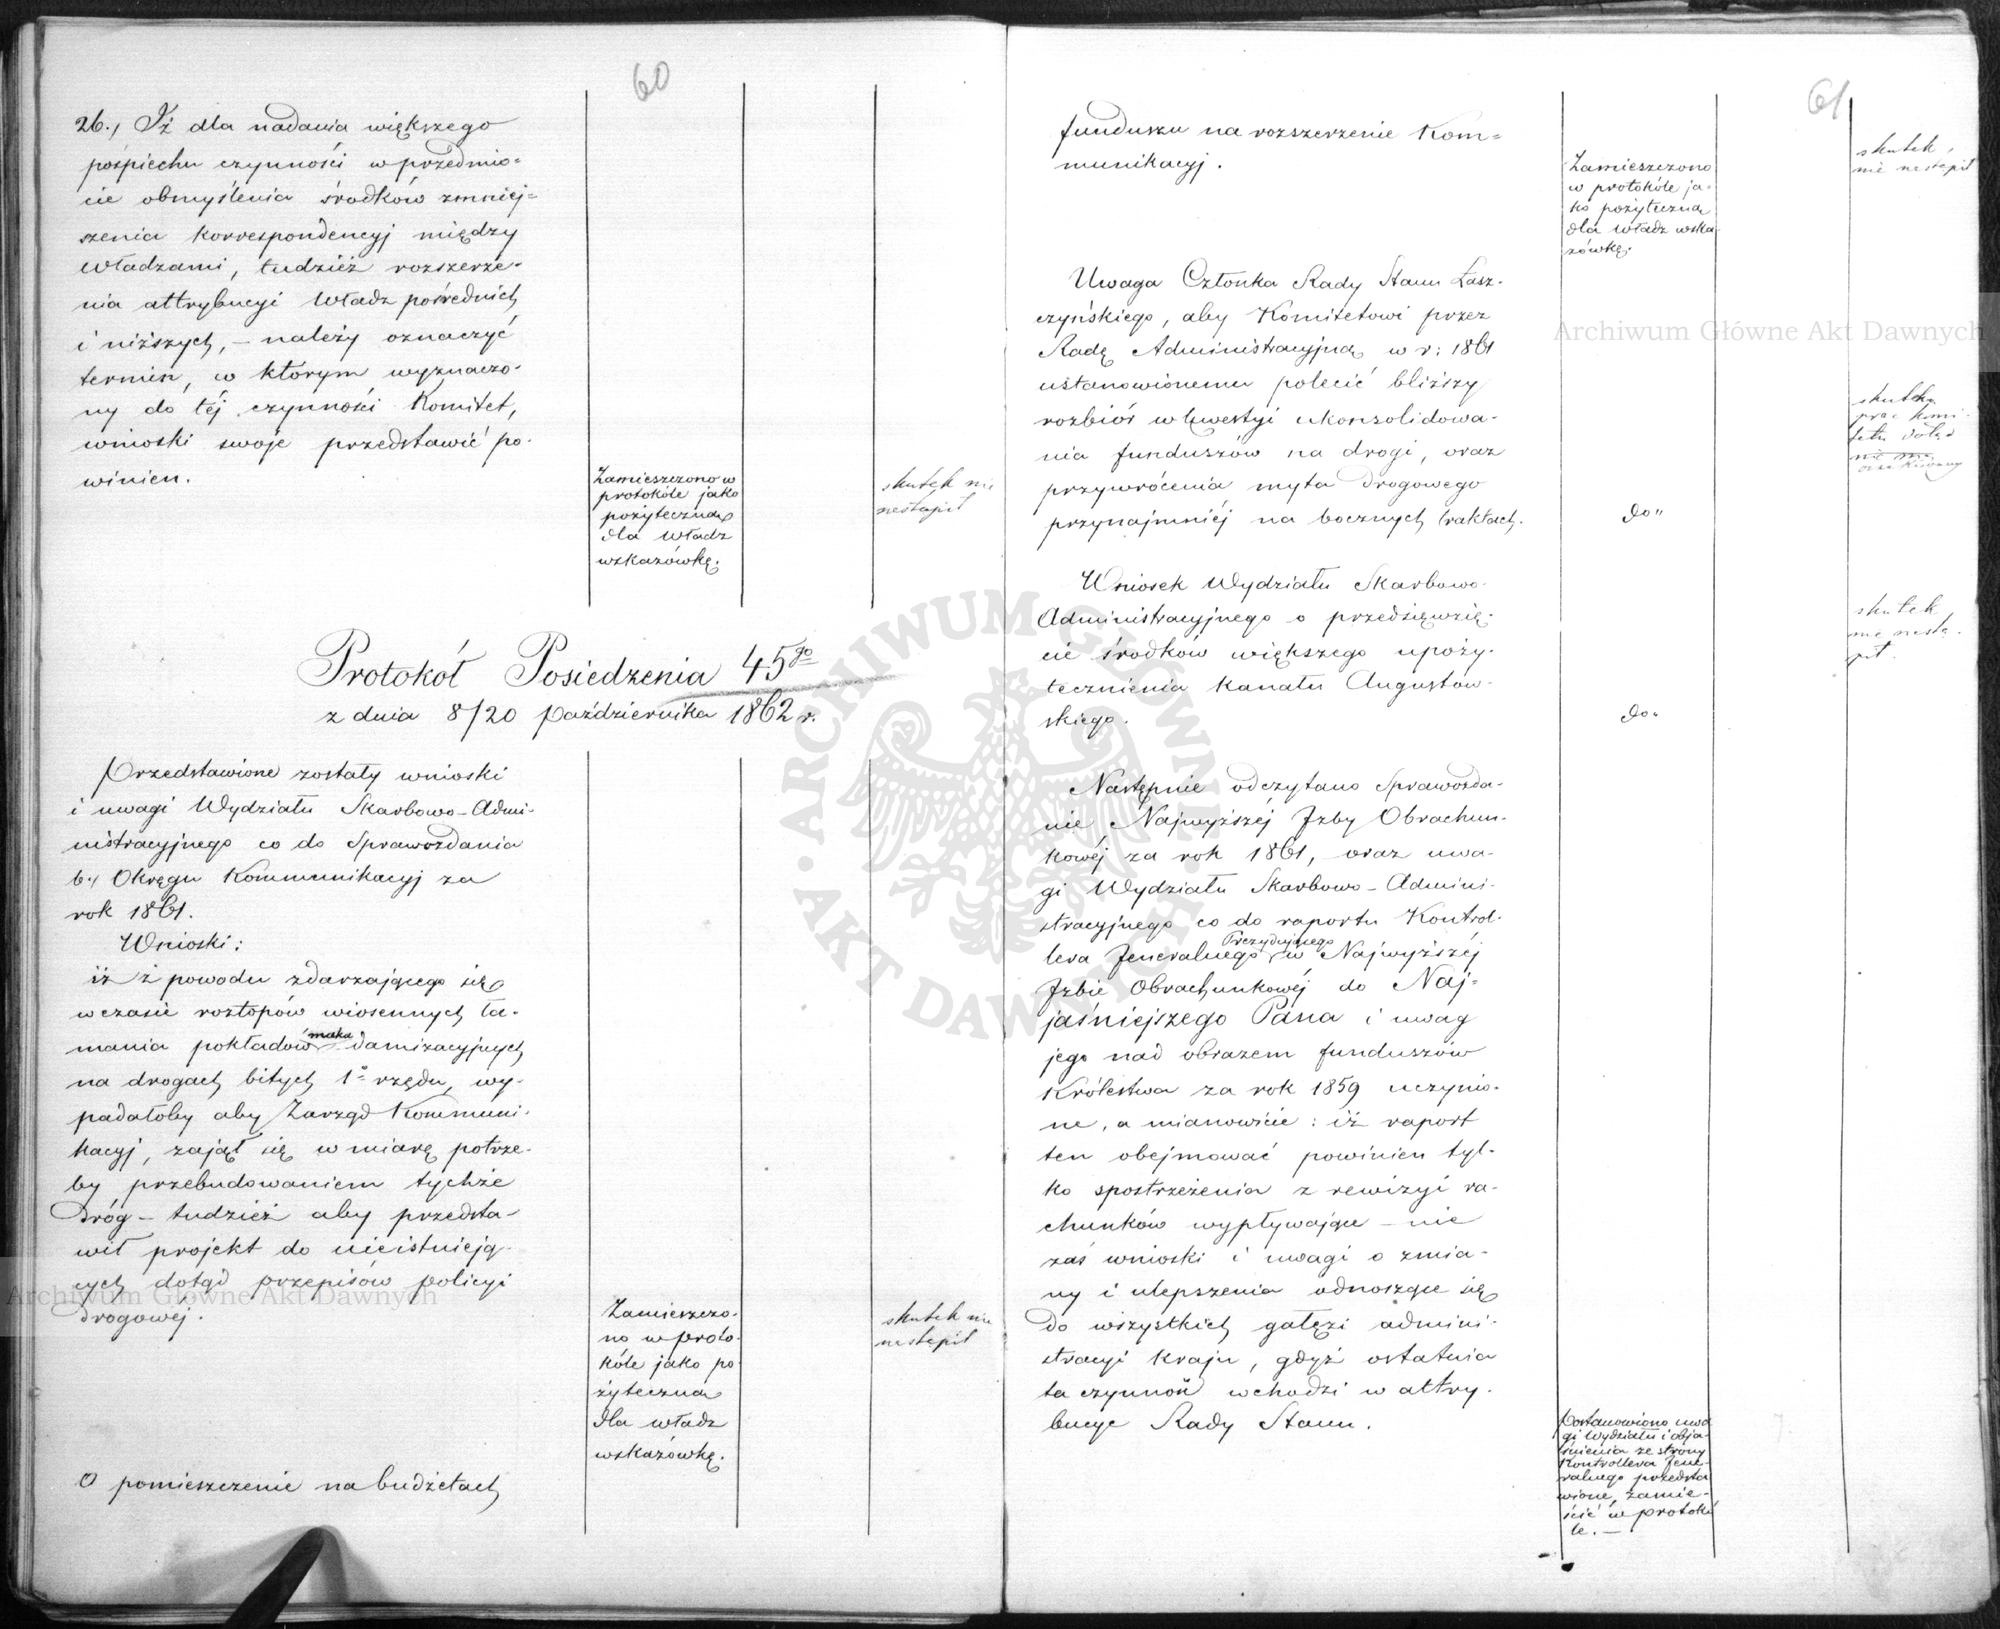 60
26., Iż dla nadania większego
pośpiechu czynności w przedmio-
cie obmyślenia środków zmniej-
szenia korrespondencyj między
Władzami, tudzież rozszerze-
nia attrybucyi Władz pośrednich
i niższych, – należy oznaczyć
termin, w którym wyznaczo-
ny do téj czynności Komitet,
wnioski swoje przedstawić po-
winien.
Zamieszczono w
protokóle jako
pożyteczną
dla Władz
wskazówkę.
skutek nie
nastąpił
Protokół Posiedzenia 45go
z dnia 8/20 Października 1862 r.
Przedstawione zostały wnioski
i uwagi Wydziału Skarbowo-Admi-
nistracyjnego co do Sprawozdania
b. Okręgu Kommunikacyj za
rok 1861.
Wnioski:
iż z powodu zdarzającego się
w czasie roztopów wiosennych ła-
mania pokładów makadamizacyjnych
na drogach bitych 1o rzędu, wy-
padałoby aby Zarząd Kommuni-
kacyj, zajął się w miarę potrze-
by przebudowaniem tychże
dróg – tudzież aby przedsta-
wił projekt do nieistnieją-
cych dotąd przepisów policyi
drogowéj.
Zamieszczo-
no w proto-
kóle jako po-
żyteczną
dla władz
wskazówkę.
skutek nie
nastąpił
O pomieszczenie na budżetach
61
funduszu na rozszerzenie Kom-
munikacyj.
Zamieszczono
w protokóle ja-
ko pożyteczną
dla Władz wska-
zówkę.
skutek
nie nastąpił
Uwaga Członka Rady Stanu Łasz-
czyńskiego, aby Komitetowi przez
Radę Administracyjną w r: 1861
ustanowionemu polecić bliższy
rozbiór w kwestyi skonsolidowa-
nia funduszów na drogi, oraz
przywrócenia myta drogowego
przynajmniéj na bocznych traktach.
do"
skutek
prac komi-
tetu dotąd
nie ma
oczekiwany
Wniosek Wydziału Skarbowo-
Administracyjnego o przedsięwzię-
cie środków większego upoży-
tecznienia kanału Augustow-
skiego.
do"
skutek
nie nastą-
pił.
Następnie odczytano Sprawozda-
nie Najwyższéj Izby Obrachun-
kowéj za rok 1861, oraz uwa-
gi Wydziału Skarbowo-Admini-
stracyjnego co do raportu Kontrol-
lera Jeneralnego Prezydującego w Najwyższéj
Izbie Obrachunkowéj do Naj-
jaśniejszego Pana i uwag
jego nad obrazem funduszów
Królestwa za rok 1859 uczynio-
ne, a mianowicie: iż raport
ten obejmować powinien tyl-
ko spostrzeżenia z rewizyi ra-
chunków wypływające – nie
zaś wnioski i uwagi o zmia-
ny i ulepszenia odnoszące się
do wszystkich gałęzi admini-
stracyi kraju, gdyż ostatnia
ta czynność wchodzi w attry-
bucye Rady Stanu.
Postanowiono uwa-
gi Wydziału i obja-
śnienia ze strony
Kontrollera Jene-
ralnego przedsta-
wione, zamie-
ścić w protokó-
le. –
Archiwum Główne Akt Dawnych
Archiwum Główne Akt Dawnych
ARCHIWUM GŁÓWNE AKT DAWNYCH